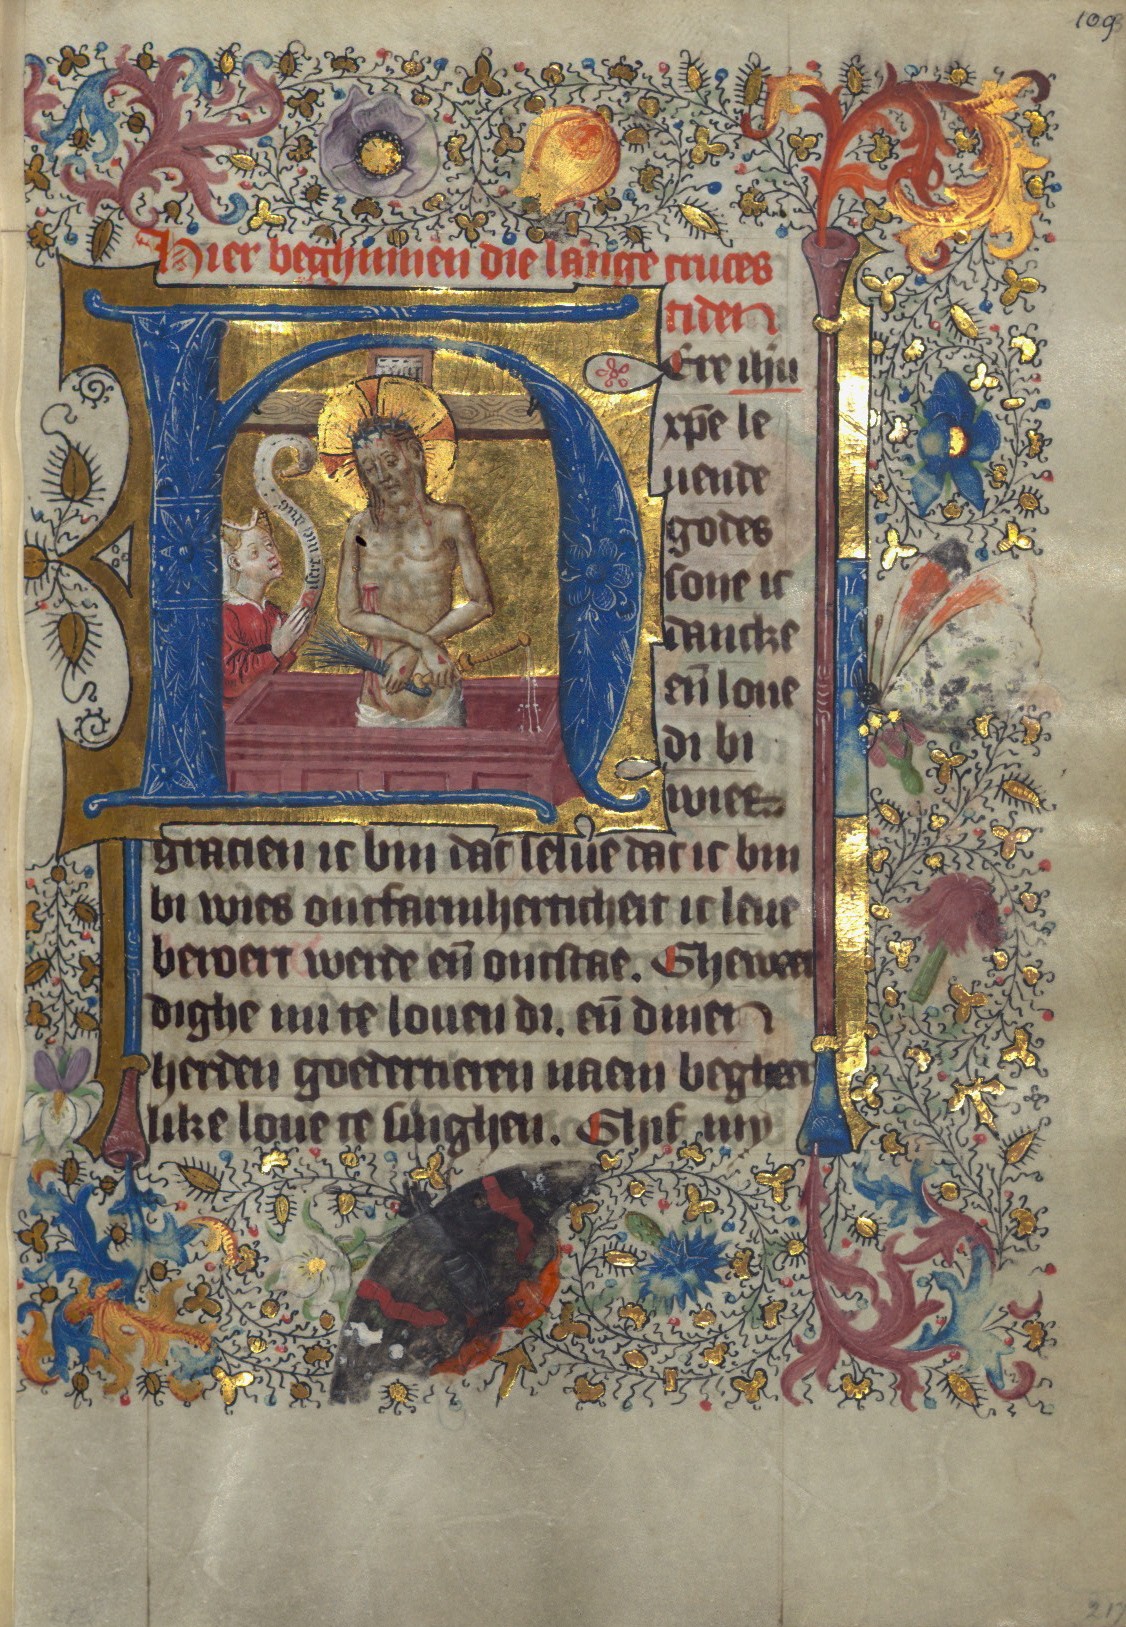 109
Hier beghinnen die langhe cruces
tiden
Here ihu
xpe le
uende
godes
sone ic
dancke
en̄ loue
di bi
wies
gracien ic bin dat selue dat ic bin
bi wies ontfarmherticheit ic leue
beroert werde en̄ ontstae. Ghewer
dighe mi te louen di. en̄ dinen
herden goedertieren naem begheer
like loue te singhen. Ghif my
217